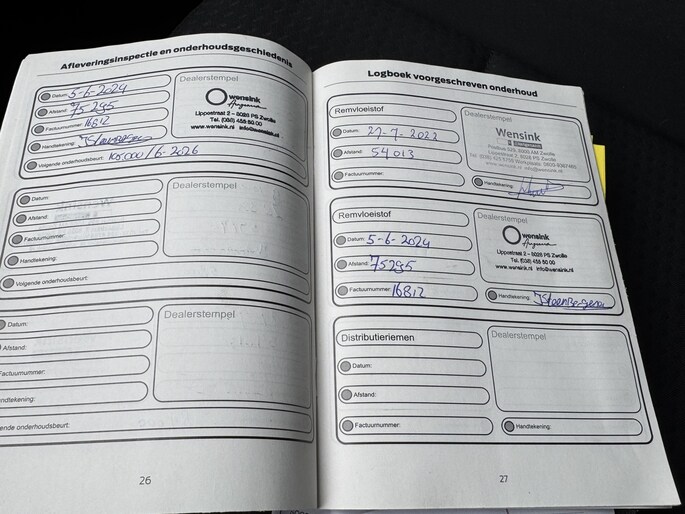 Afleveringsinspectie en onderhoudsgeschiedenis
Datum: 5-6-2024
Afstand: 75295
Factuurnummer: 16812
Handtekening:
Volgende onderhoudsbeurt: 105.000 / 6-2026
Dealerstempel
wensink
Lippestraat 2 – 8028 PS Zwolle
Tel. (038) 455 50 00
www.wensink.nl info@wensink.nl
Datum:
Afstand:
Factuurnummer:
Handtekening:
Volgende onderhoudsbeurt:
Dealerstempel
Datum:
Afstand:
Factuurnummer:
ndtekening:
ende onderhoudsbeurt:
Dealerstempel
26
Logboek voorgeschreven onderhoud
Remvloeistof
Datum:
Afstand: 54013
Factuurnummer:
Dealerstempel
Wensink
Handtekening:
Remvloeistof
Datum: 5-6-2024
Afstand: 75295
Factuurnummer: 16812
Dealerstempel
wensink
Lippestraat 2 – 8028 PS Zwolle
Tel. (038) 455 50 00
www.wensink.nl info@wensink.nl
Handtekening:
Distributieriemen
Datum:
Afstand:
Factuurnummer:
Dealerstempel
Handtekening:
27